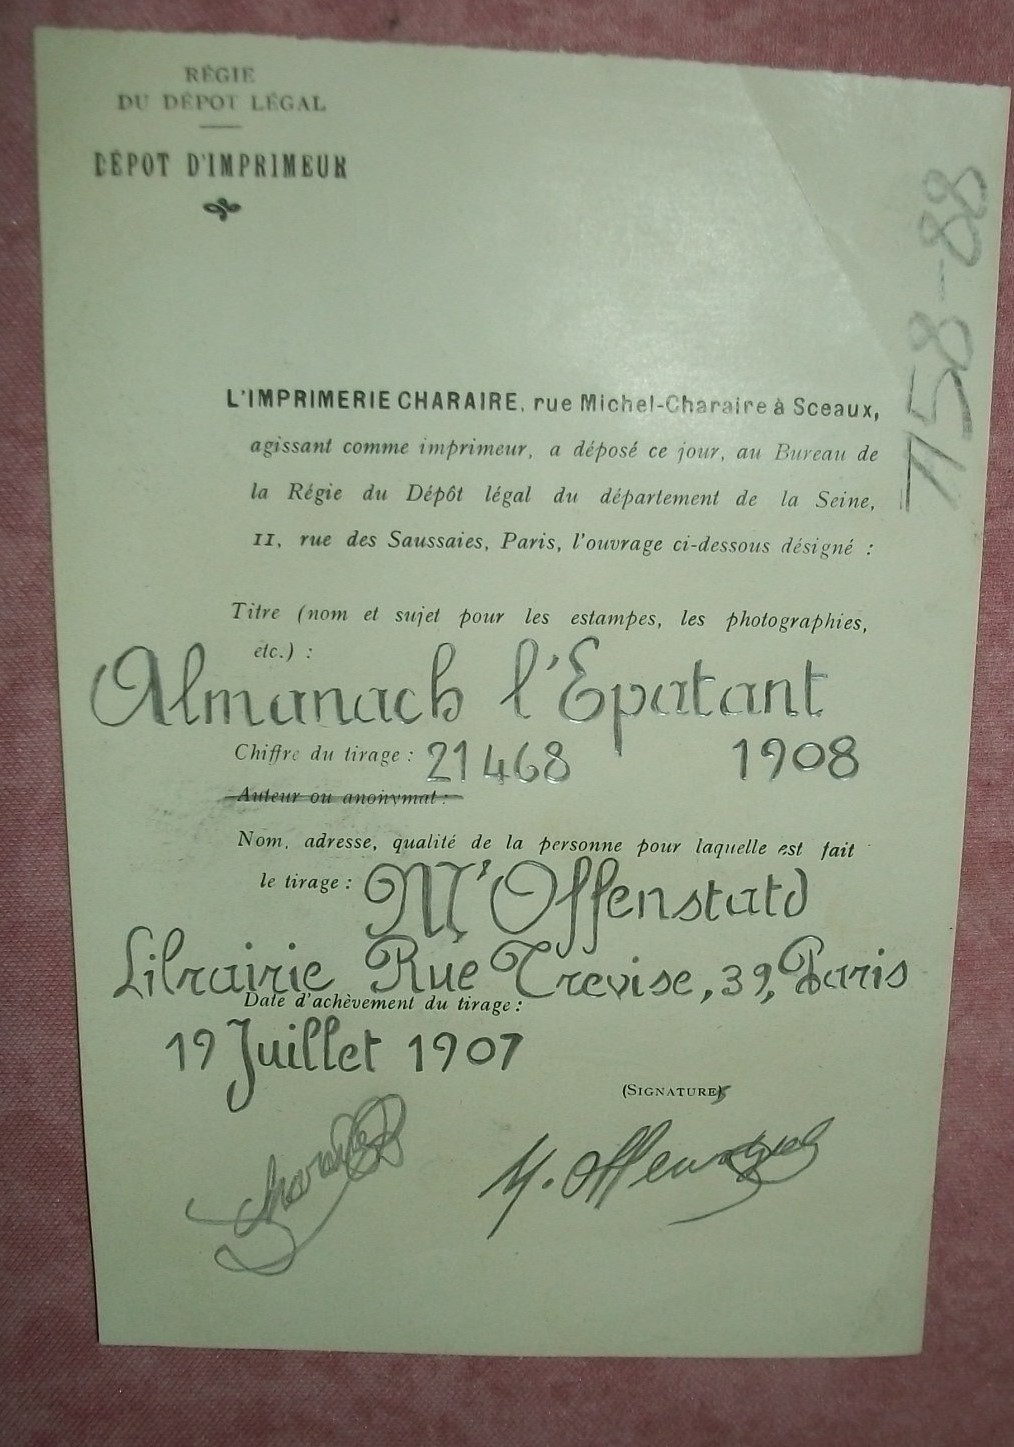 RÉGIE
DU DÉPOT LÉGAL
DÉPOT D'IMPRIMEUR
L'IMPRIMERIE CHARAIRE, rue Michel-Charaire à Sceaux,
agissant comme imprimeur, a déposé ce jour, au Bureau de
la Régie du Dépôt légal du département de la Seine,
11, rue des Saussaies, Paris, l'ouvrage ci-dessous désigné :
Titre (nom et sujet pour les estampes, les photographies,
etc.) :
Almanach l'Epatant
Chiffre du tirage : 21468 1908
Auteur ou anonymat :
Nom, adresse, qualité de la personne pour laquelle est fait
le tirage : Mr Offenstatd
Librairie Rue Trevise, 39, Paris
Date d'achèvement du tirage :
19 Juillet 1907
(SIGNATURE)
Charaire
M. Offen